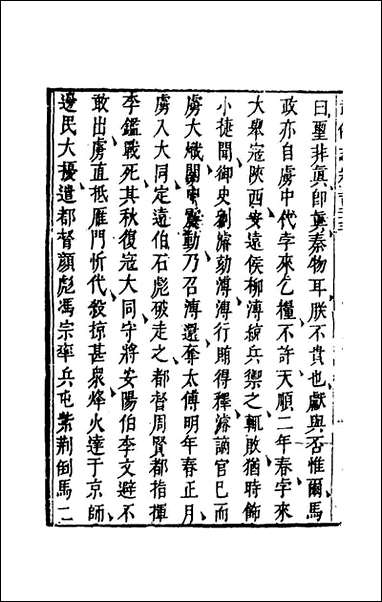 曰璽非眞卽眞秦物耳朕不貴也獻與否惟爾馬
政亦自虜中代孛來乞糧不許天順二年春孛來
大舉寇陝西安遠侯柳溥統兵禦之輒敗猶時飾
小捷聞御史劉濬劾溥溥行賄得釋濬謫官巳而
虜大熾關中騷動乃召溥還奪太傅明年春正月
虜入大同定遠伯石彪破走之都督周賢都指揮
李鑑戰死其秋復寇大同守將安陽伯李文避不
敢出虜直抵雁門忻代殺掠甚衆烽火達于京師
邊民大擾遣都督顏彪馮宗率兵屯紫荆倒馬二